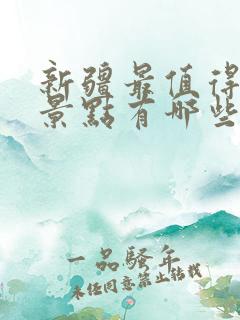 新疆最值得
景點有哪些
一品騷年
未任同意禁止转载